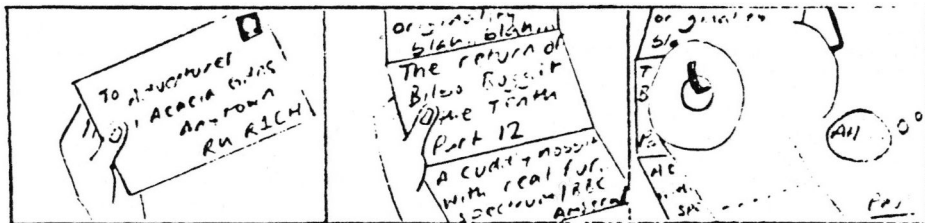 To Adventurer
1 Acacia Gdns
Anytown
RU R1CH
originality
blah, blah...
The return of
Bilbo Boggit
the Tenth
Part 12
A cuddly moggit
with real fur.
Spectrum/BBC
Amstrad
originality
bla
T
B
AH